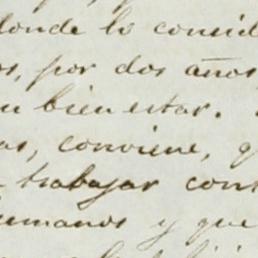 donde lo consid
os, por dos años
su bien estar.
as, conviene, q
trabajar cont
humanos y que